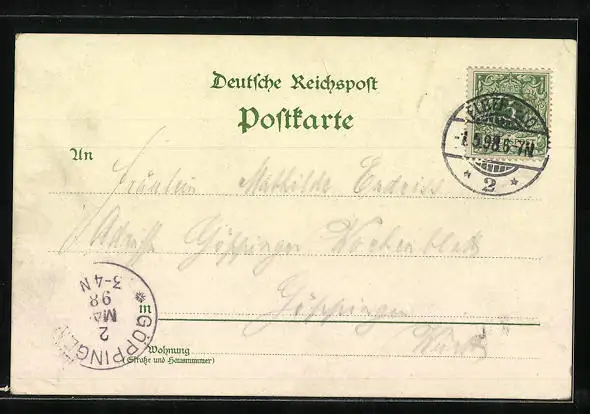 Deutsche Reichspost
Postkarte
ELBERFELD
-1.5.98.6-7N
* 2 *
An
Fräulein Mathilde Endriss
Adr. Göppinger Wochenblatt
in Göppingen
Württ.
Wohnung
(Straße und Hausnummer)
* GÖPPINGEN
2
MAI
98
3-4N